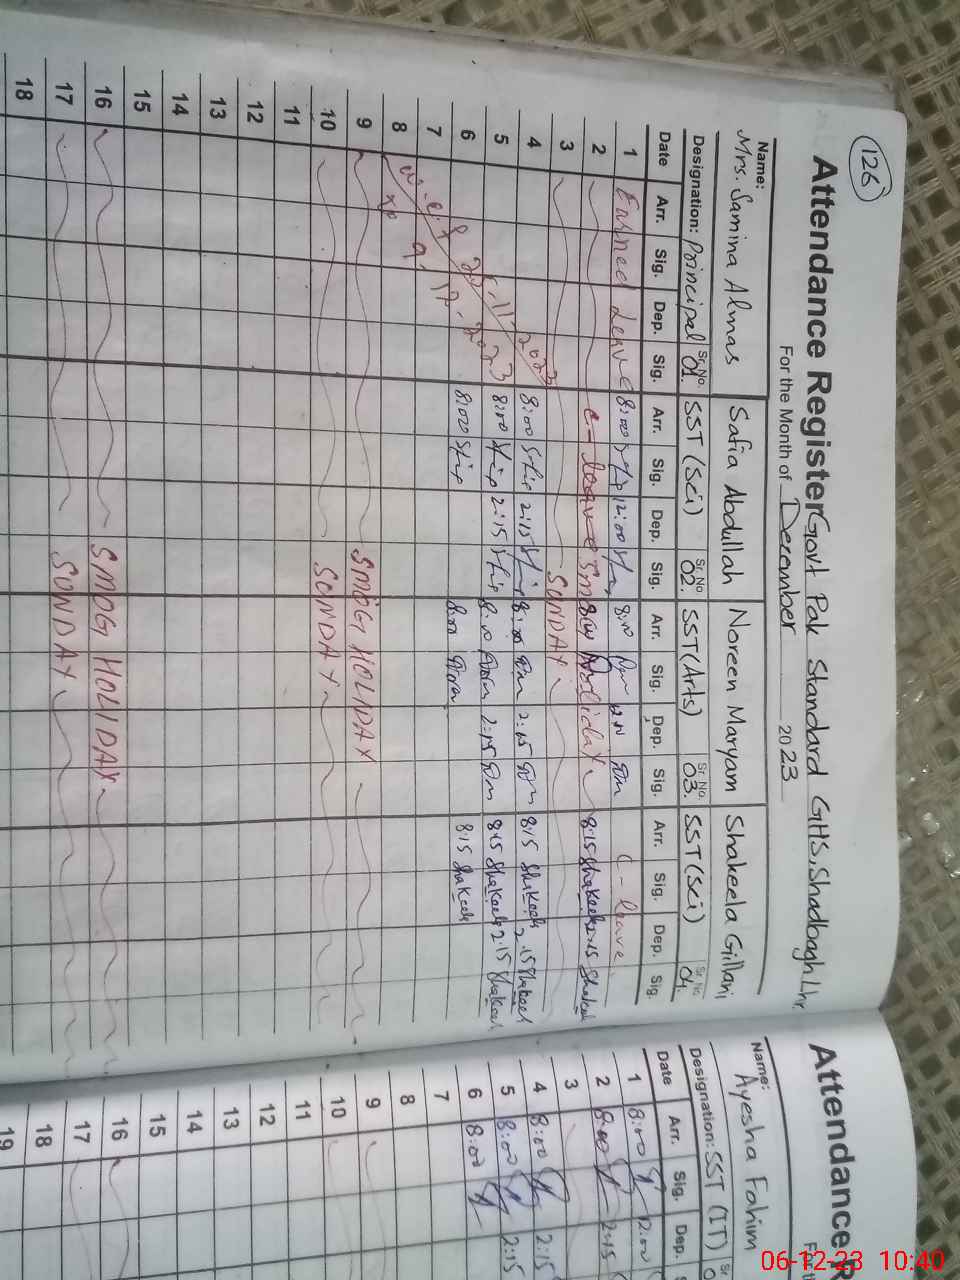 126
Attendance Register Govt Pak Standard GHS, Shadbagh Lhr.
For the Month of December 2023
Name: Mrs. Samina Almas Safia Abdullah Noreen Maryam Shakeela Gillani
Designation: Principal Sr. No. 01. SST (Sci) Sr. No. 02. SST (Arts) Sr. No. 03. SST (Sci) Sr. No. 04.
Date Arr. Sig. Dep. Sig. Arr. Sig. Dep. Sig. Arr. Sig. Dep. Sig. Arr. Sig. Dep. Sig.
1 Earned Leave 8:00 12:00 8:00 C-leave
2 C-leave Smog Holiday 8:15 Shakeela 2:15 Shakeel
3 SUNDAY
4 8:00 2:15 8:00 2:15 8:15 Shakeel 2:15 Shakeel
5 8:00 2:15 8:00 2:15 8:15 Shakeel 2:15 Shakeel
6 8:00 8:00 8:15 Shakeel
7
8
w.e.f 2023
to 9-12-2023
9 SMOG HOLIDAY
10 SUNDAY
11
12
13
14
15
16 SMOG HOLIDAY
17 SUNDAY
18
Attendance R
For th
Name: Ayesha Fahim
Designation: SST (IT) Sr
Date Arr. Sig. Dep.
1 8:00 12:00
2 8:00 2:15
3
4 8:00 2:15
5 8:00 2:15
6 8:00
7
8
9
10
11
12
13
14
15
16
17
18
19
06-12-23 10:40